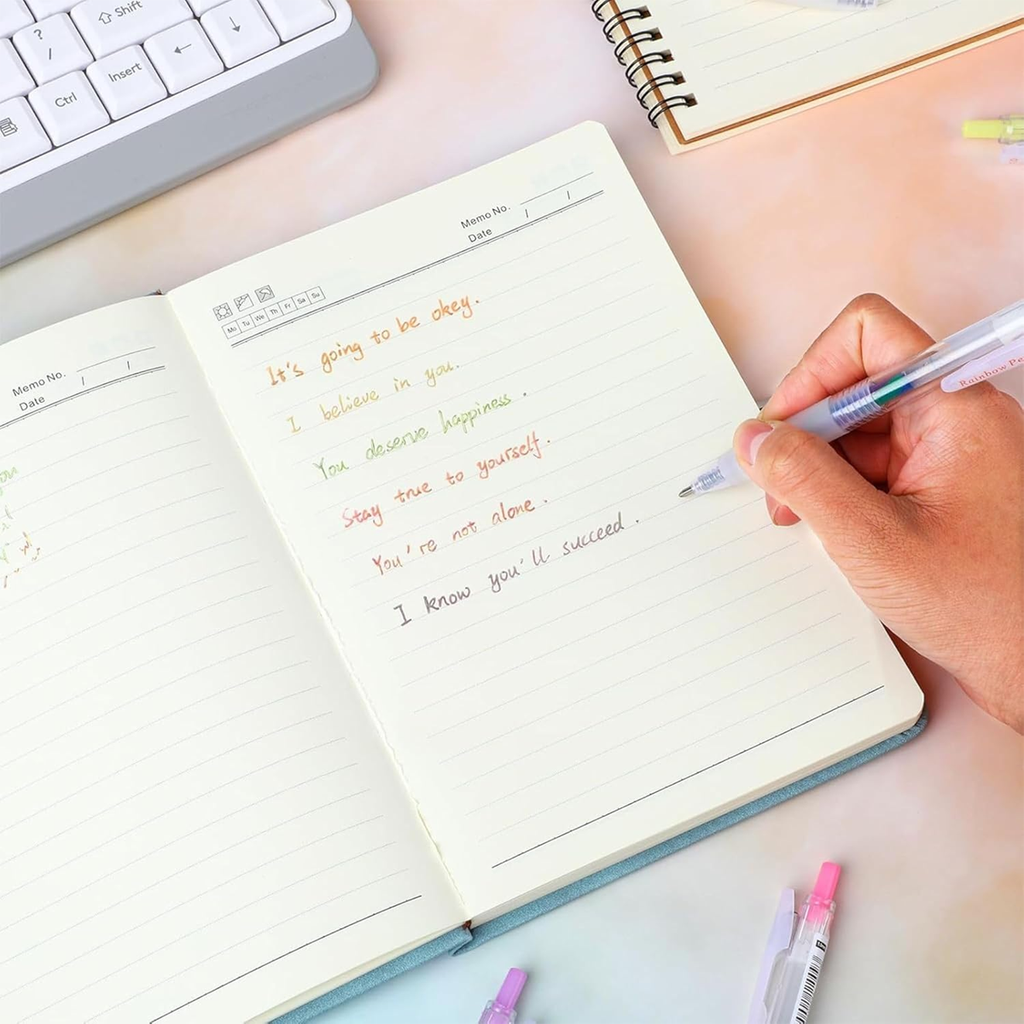 Shift
?
/
Insert
Ctrl
Memo No.
Date / /
Mo Tu We Th Fr Sa Su
It's going to be okey.
I believe in you.
You deserve happiness.
Stay true to yourself.
You're not alone.
I know you'll succeed.
Memo No.
Date / /
Rainbow